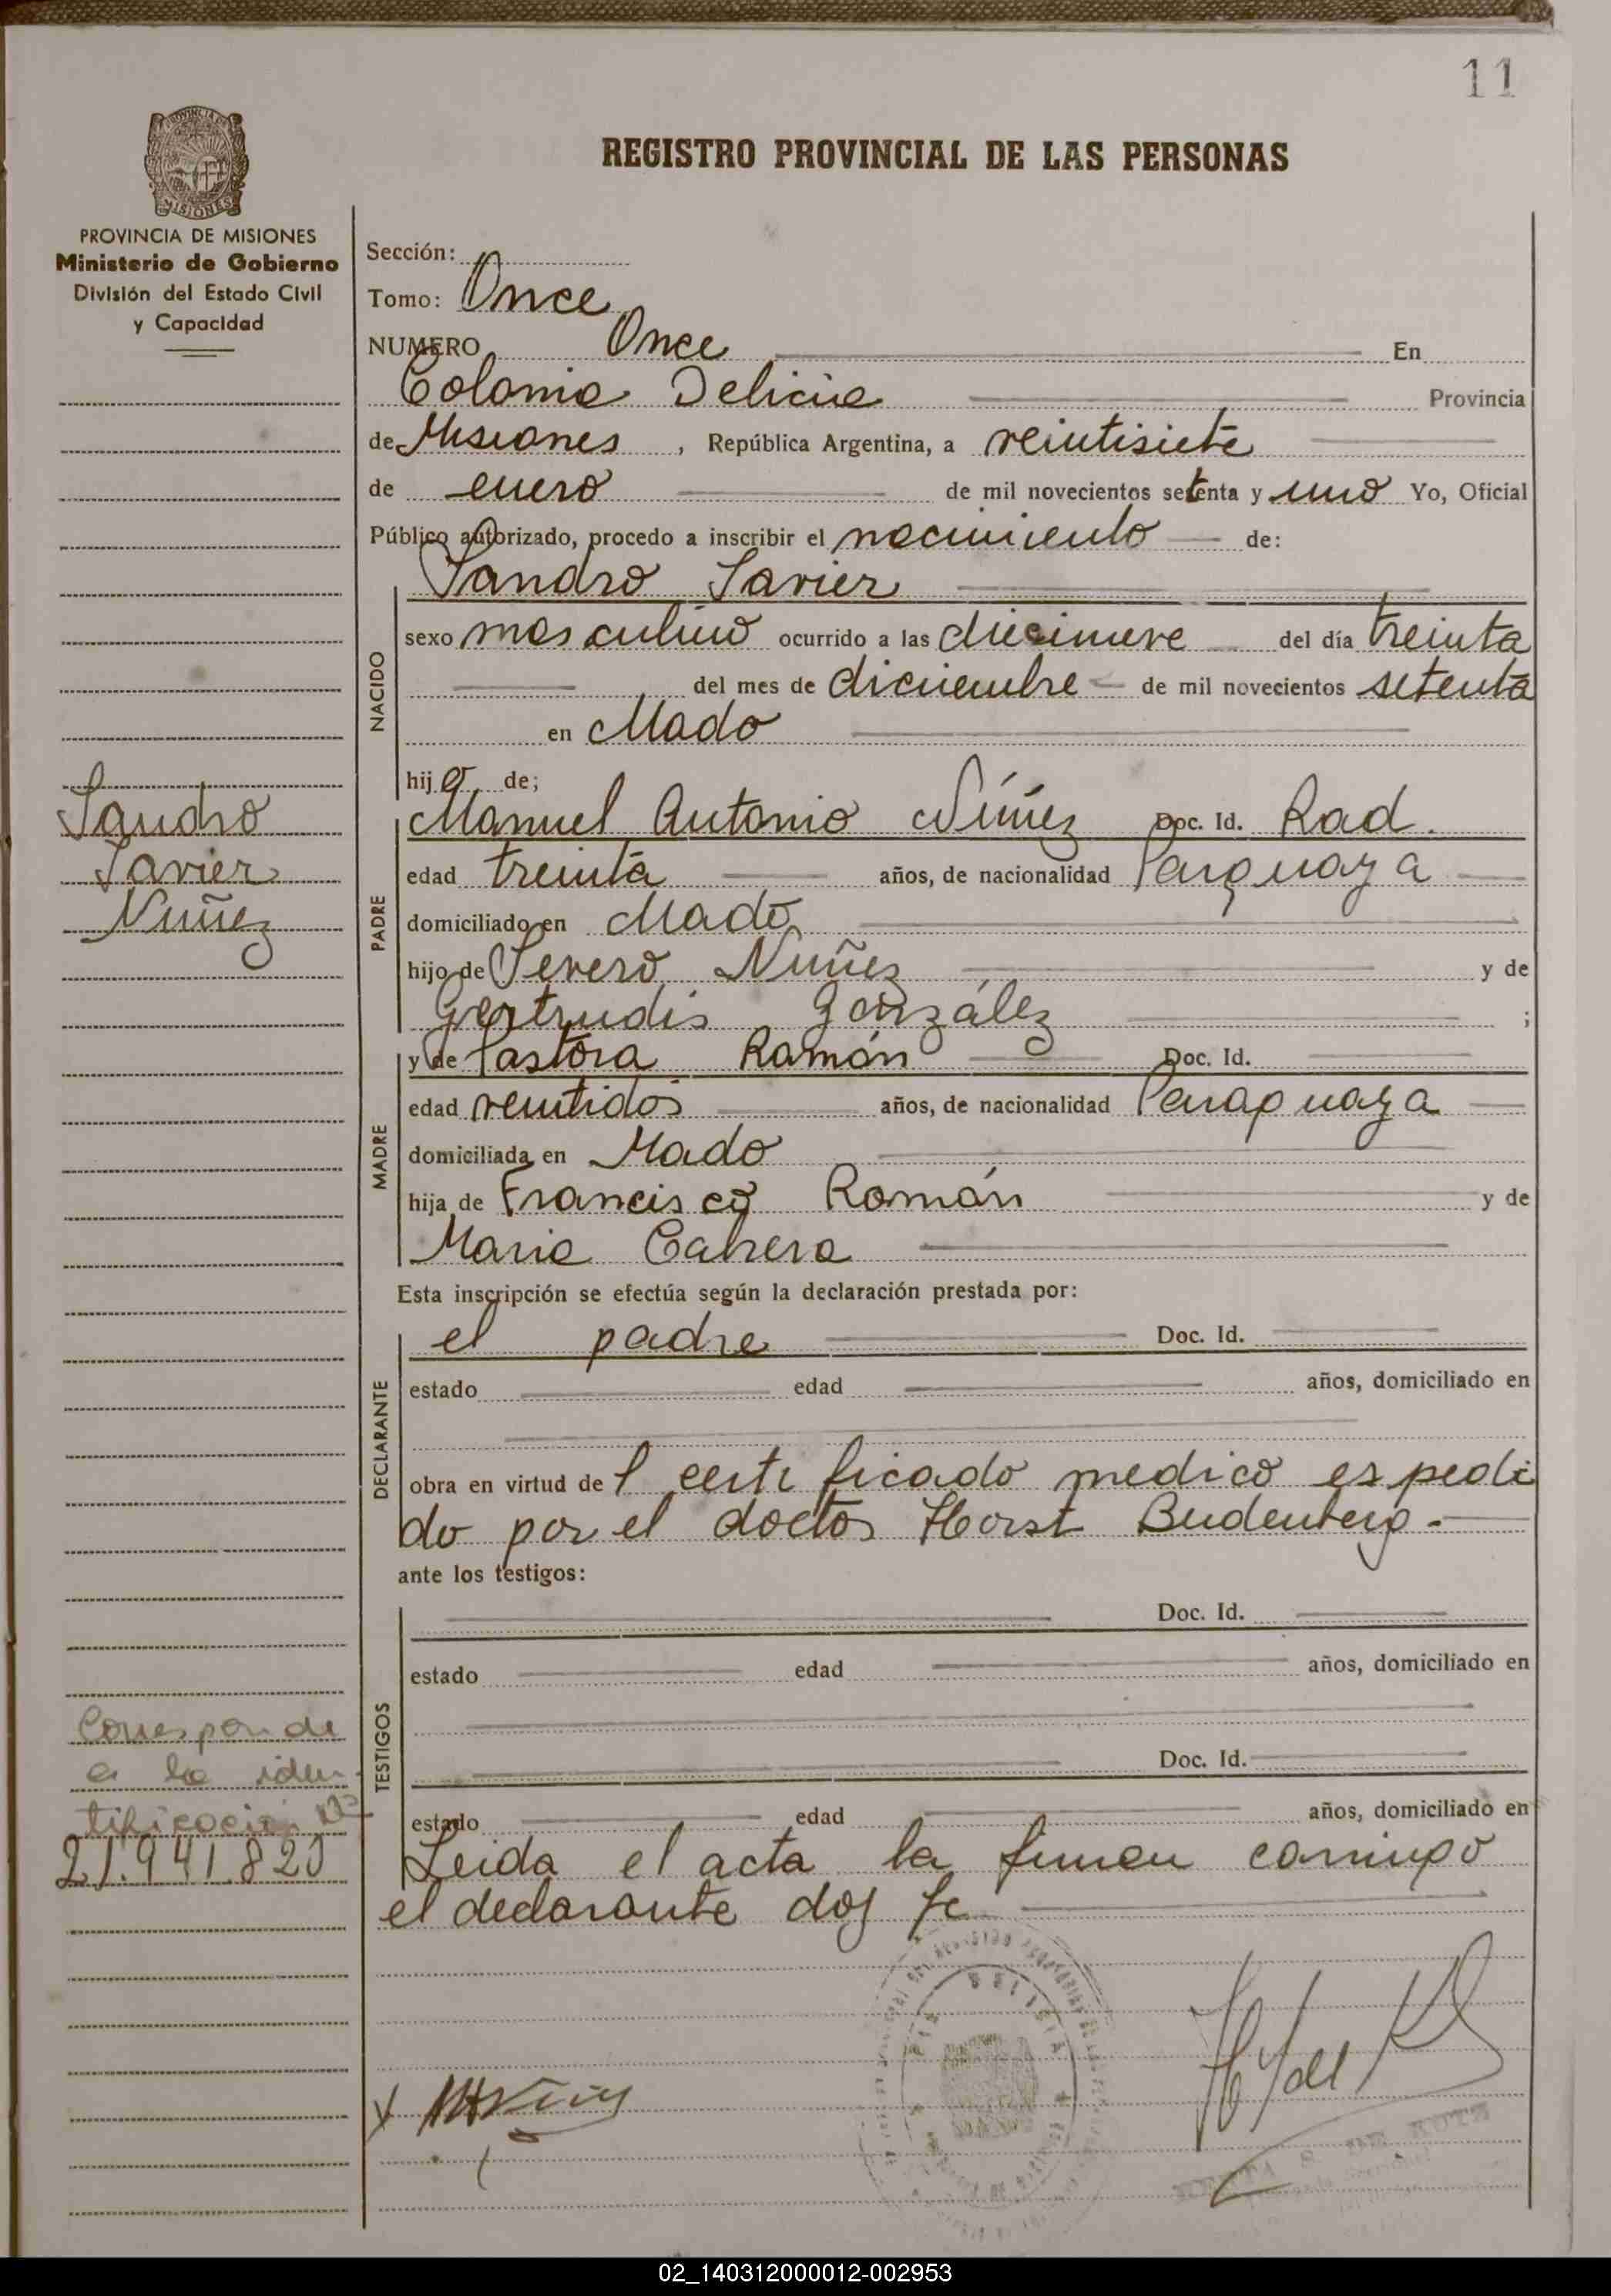 11
REGISTRO PROVINCIAL DE LAS PERSONAS
PROVINCIA DE MISIONES
Ministerio de Gobierno
División del Estado Civil
y Capacidad
Sección:
Tomo: Once
NUMERO Once En
Colonia Delicia Provincia
de Misiones , República Argentina, a veintisiete
de enero de mil novecientos setenta y uno Yo, Oficial
Público autorizado, procedo a inscribir el nacimiento de:
Sandro Javier
NACIDO
sexo masculino ocurrido a las diecinueve del día treinta
del mes de diciembre de mil novecientos setenta
en Mado
hijo de;
Sandro
Javier
Nuñez
PADRE
Manuel Antonio Núñez Doc. Id. Rad.
edad treinta años, de nacionalidad Parguaya
domiciliado en Mado
hijo de Severo Nuñez y de
Gertrudis González ;
MADRE
y de Pastora Ramón Doc. Id.
edad veintidos años, de nacionalidad Paraguaya
domiciliada en Mado
hija de Francisco Román y de
Maria Cabrera
Esta inscripción se efectúa según la declaración prestada por:
DECLARANTE
el padre Doc. Id.
estado edad años, domiciliado en
obra en virtud de l certificado medico espedi
do por el doctor Horst Budenberg.-
ante los testigos:
TESTIGOS
Doc. Id.
estado edad años, domiciliado en
Doc. Id.
estado edad años, domiciliado en
Corresponde
a la iden
tificación Nº
21.941.820
Leida el acta la firman conmigo
el declarante doy fe
02_140312000012-002953